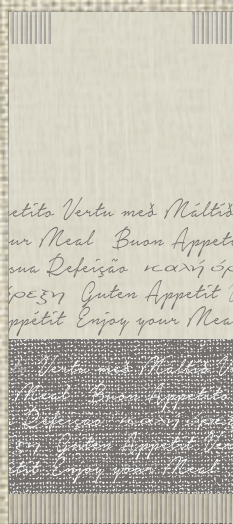 etito Vertu með Máltíð
ur Meal Buon Appet
sua Refeição καλή όρ
όρεξη Guten Appetit V
ppétit Enjoy your Mea
Vertu með Máltíð V
Meal Buon Appetito
Refeição καλή όρεξ
ξη Guten Appetit Ve
tit Enjoy your Meal